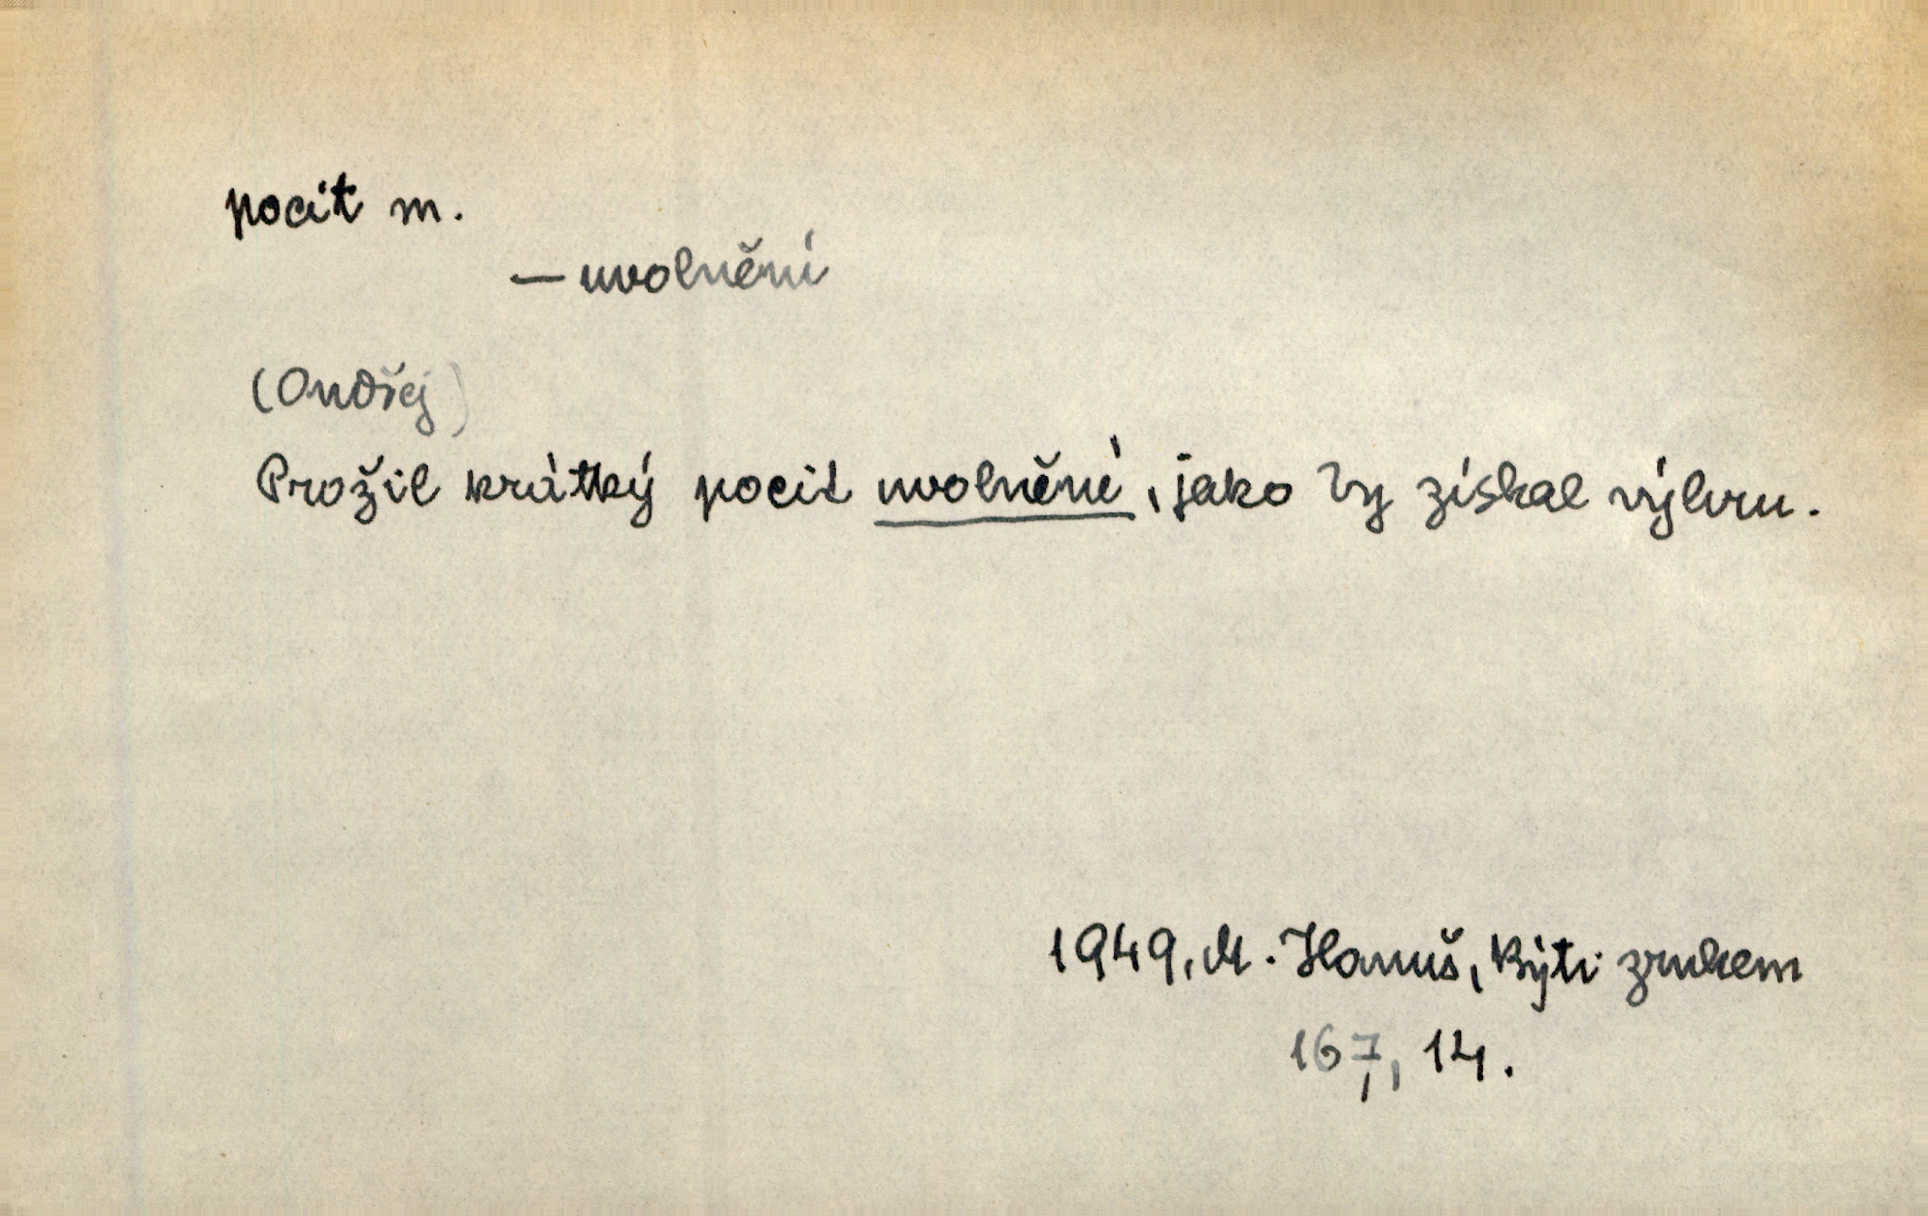 pocit m.
— uvolnění
(Ondřej)
Prožil krátký pocit uvolnění, jako by získal výhru.
1949, M. Hanuš, Býti zrnkem
167, 14.